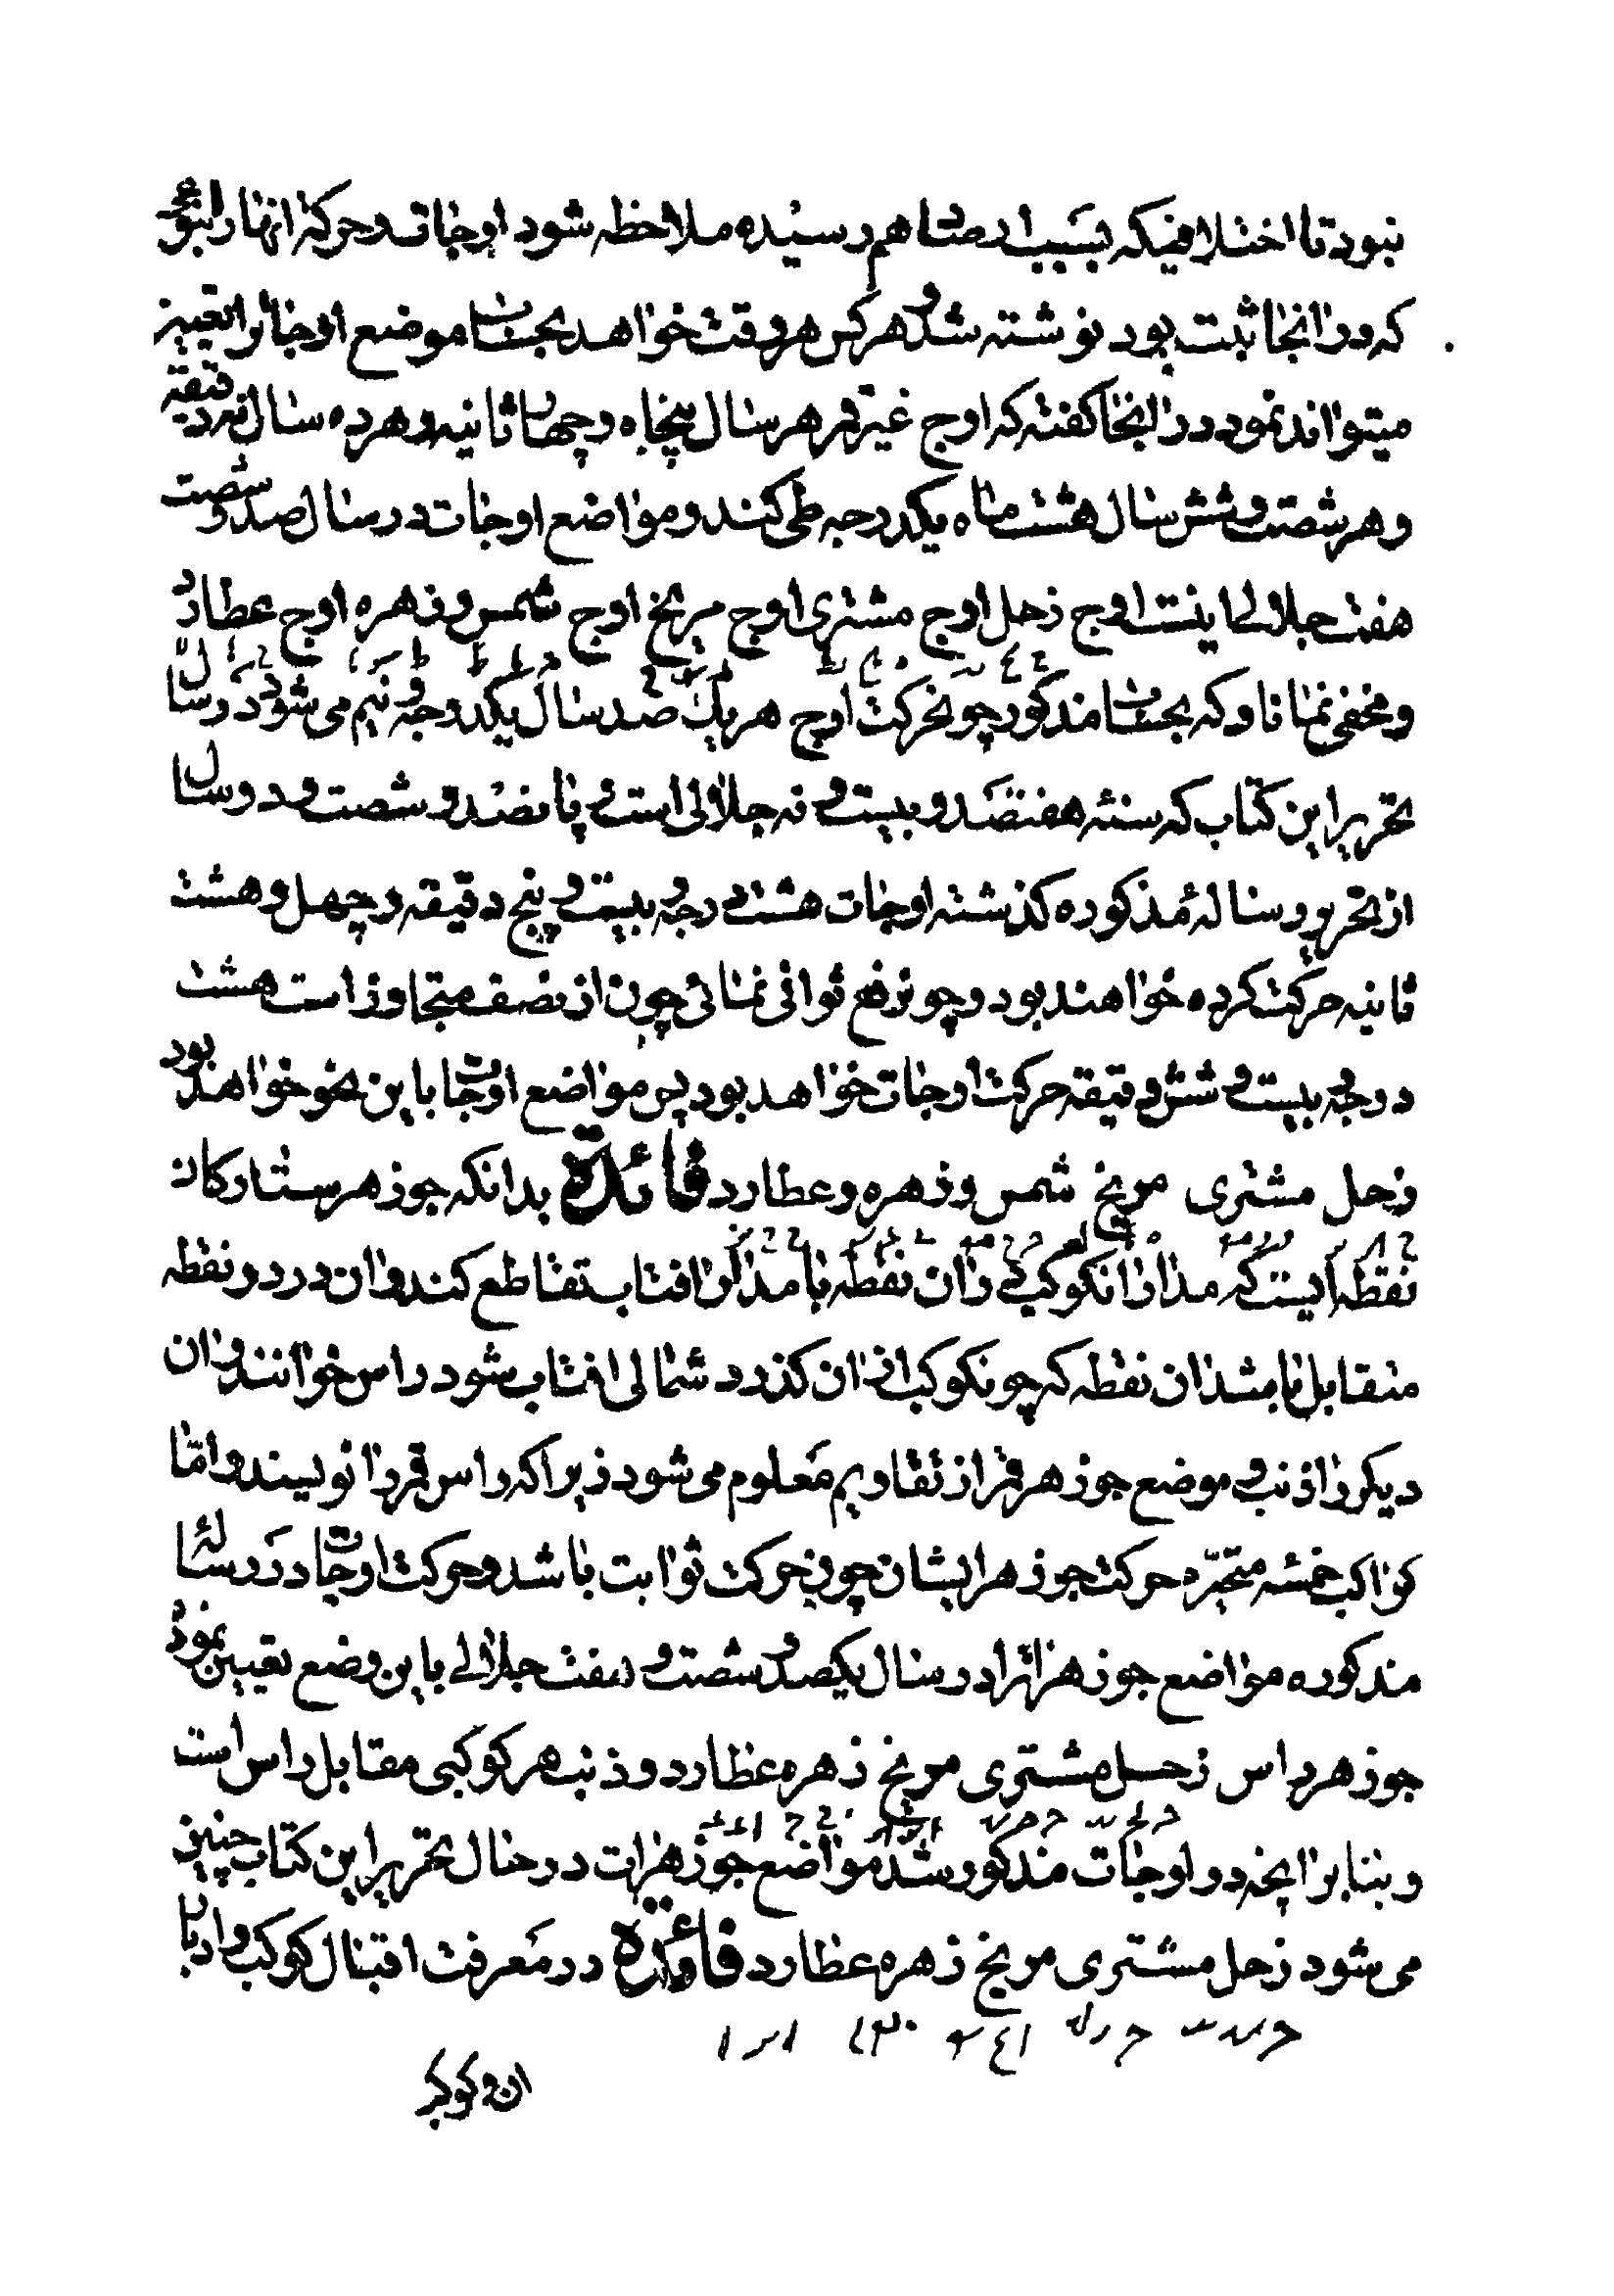 نبود تا اختلافیکه بسبب ارصاد بهم رسیده ملاحظه شود اوجات و حرکة انها را بنحوی
که در انجا ثبت بود نوشته شد و هر کس هر وقت خواهد بحساب موضع اوجات را تعیین
میتواند نمود و در اینجا کفته که اوج غیر قمر هر سال پنجاه و چهار ثانیه و هر ده سال نه دقیقه
و هر شصت و شش سال هشت ماه یکدرجه طی کند و مواضع اوجات در سال صد و شصت
هفت جلالی اینست اوج زحل اوج مشتری اوج مریخ اوج شمس و زهره اوج عطارد
و مخفی نماناد که بحساب مذکور چون حرکت اوج هر یک صد سال یکدرجه و نیم می شود در سال
تحریر این کتاب که سنهٔ هفتصد و بیست و نه جلالی است و پانصد و شصت و دو سال
از تحریر رسالهٔ مذکوره کذشته اوجات هشت درجه و بیست و پنج دقیقه و چهل و هشت
ثانیه حرکت کرده خواهند بود و چون رفع ثوانی نمائی چون از نصف متجاوز است هشت
درجه و بیست و شش دقیقه حرکت اوجات خواهد بود پس مواضع اوجات باین نحو خواهند بود
زحل مشتری مریخ شمس و زهره و عطارد فائدة بدانکه جوزهر ستارکان
نقطه ایست که مدار انکوکب در ان نقطه با مدار افتاب تقاطع کند و ان در دو نقطه
متقابل باشد ان نقطه که چون کوکب از ان کذرد شمالی افتاب شود راس خوانند و ان
دیکر را ذنب و موضع جوزهر قمر از تقاویم معلوم می شود زیرا که راس قمر را نویسند و امّا
کواکب خمسه متحیّره حرکت جوزهر ایشان چون حرکت ثوابت باشد و حرکت اوجات در رسالهٔ
مذکوره مواضع جوزهراترا در سال یکصد و شصت و هفت جلالی باین وضع تعیین نموده
جوزهر راس زحل مشتری مریخ زهره عطارد و ذنب هر کوکبی مقابل راس است
و بنا بر انچه در اوجات مذکور شد مواضع جوزهرات در حال تحریر این کتاب چنین
می شود زحل مشتری مریخ زهره عطارد فائدة در معرفت اقبال کوکب و ادبار
ان کوکب